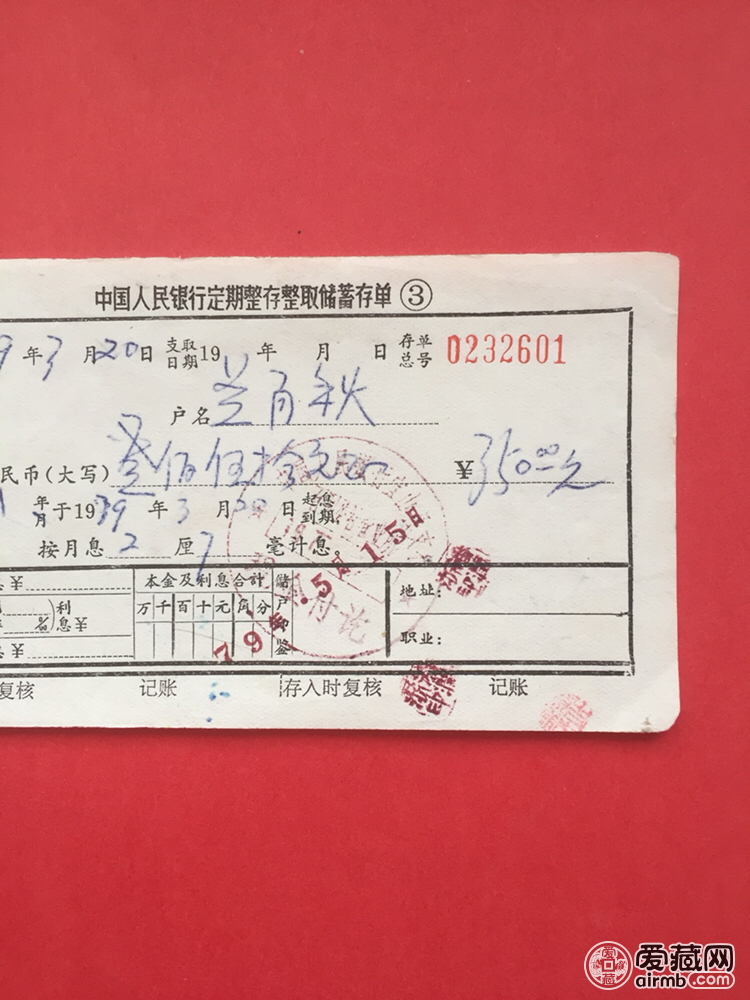 中国人民银行定期整存整取储蓄存单③
9年3月20日 支取日期19 年 月 日 存单总号 0232601
户名 兰百秋
民币(大写) 佰伍拾元 ¥350.00元
年月于1979年3月20日起息到期,
按月息2厘7毫计息。
息¥ 本金及利息合计 储户印鉴 地址:
% 利息¥ 万千百十元角分
息¥ 职业:
79年.5月15日
付讫
复核 记账 存入时复核 记账
爱藏网
airmb.com